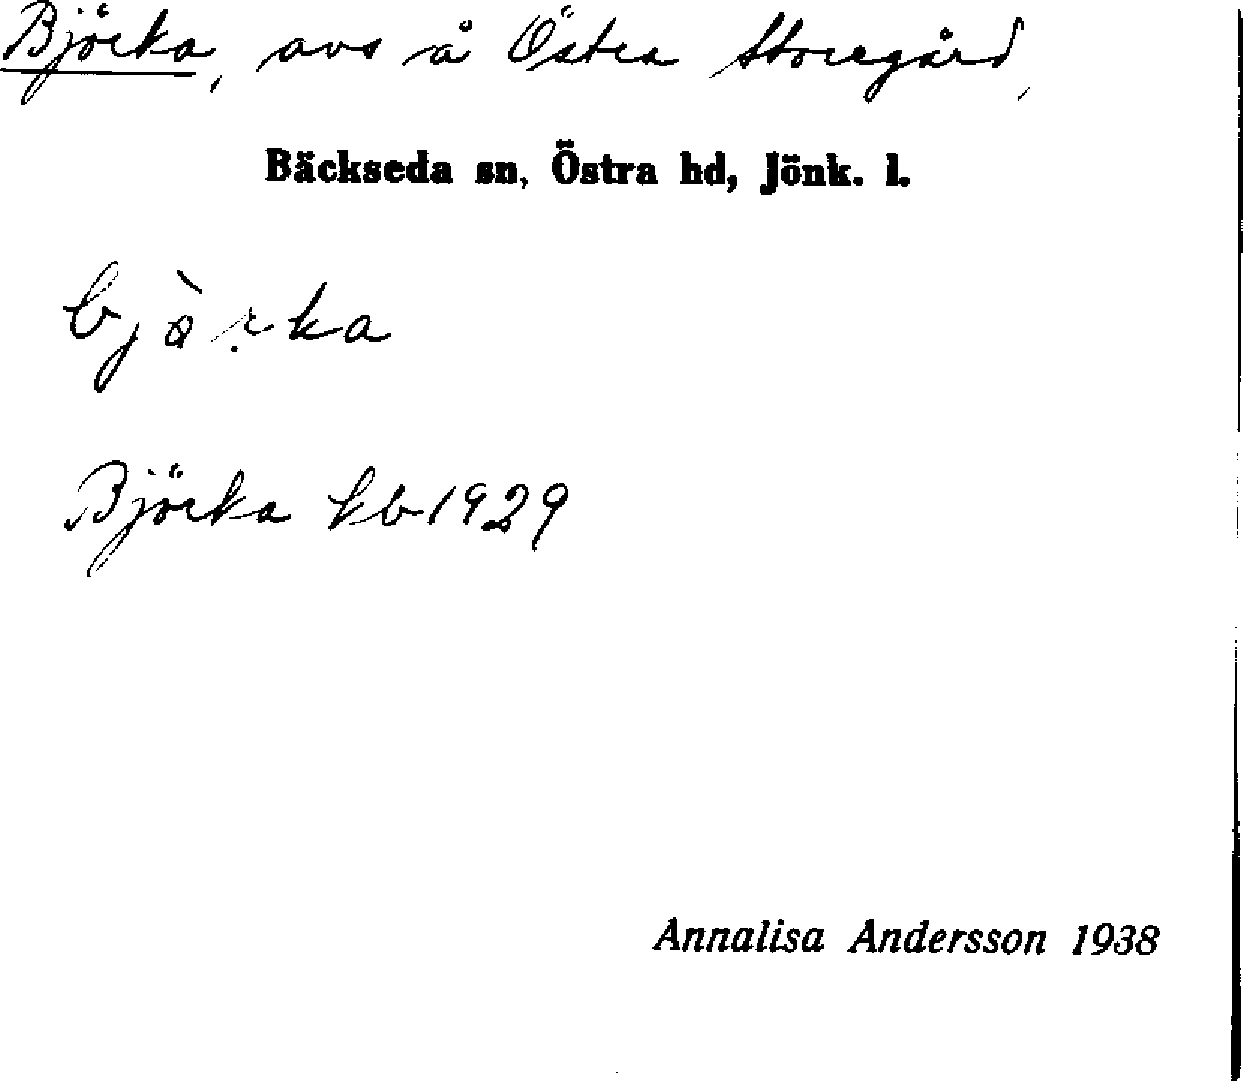 Björka, avs å Östra Storegård,
Bäckseda sn, Östra hd, Jönk. l.
bjò̤rka
Björka kb 1929
Annalisa Andersson 1938